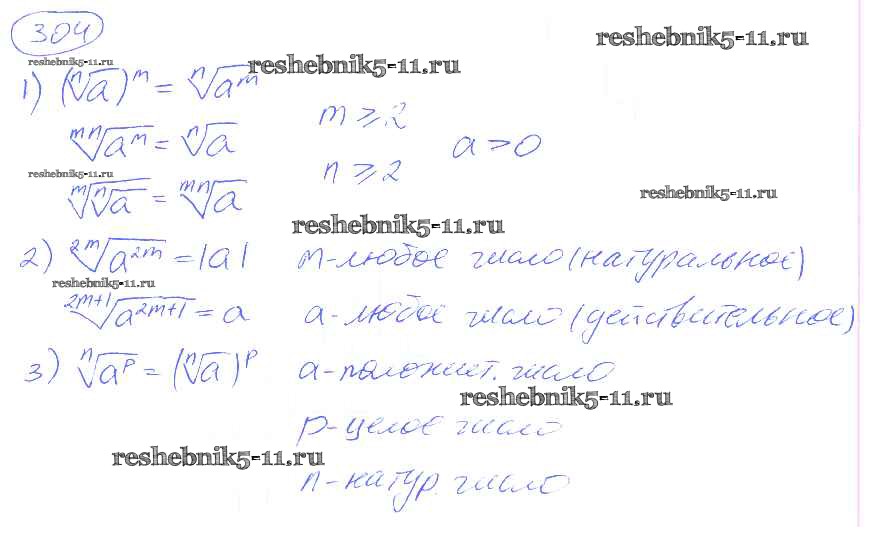 304
reshebnik5-11.ru
reshebnik5-11.ru
reshebnik5-11.ru
1) (ⁿ√a)ᵐ = ⁿ√aᵐ
m ⩾ 2
ᵐⁿ√aᵐ = ⁿ√a
a > 0
reshebnik5-11.ru
n ⩾ 2
ᵐ√ⁿ√a = ᵐⁿ√a
reshebnik5-11.ru
reshebnik5-11.ru
2) ²ᵐ√a²ᵐ = |a| m-любое число (натуральное)
reshebnik5-11.ru
²ᵐ⁺¹√a²ᵐ⁺¹ = a a-любое число (действительное)
3) ⁿ√aᵖ = (ⁿ√a)ᵖ a-положит. число
reshebnik5-11.ru
p-целое число
reshebnik5-11.ru
n-натур. число